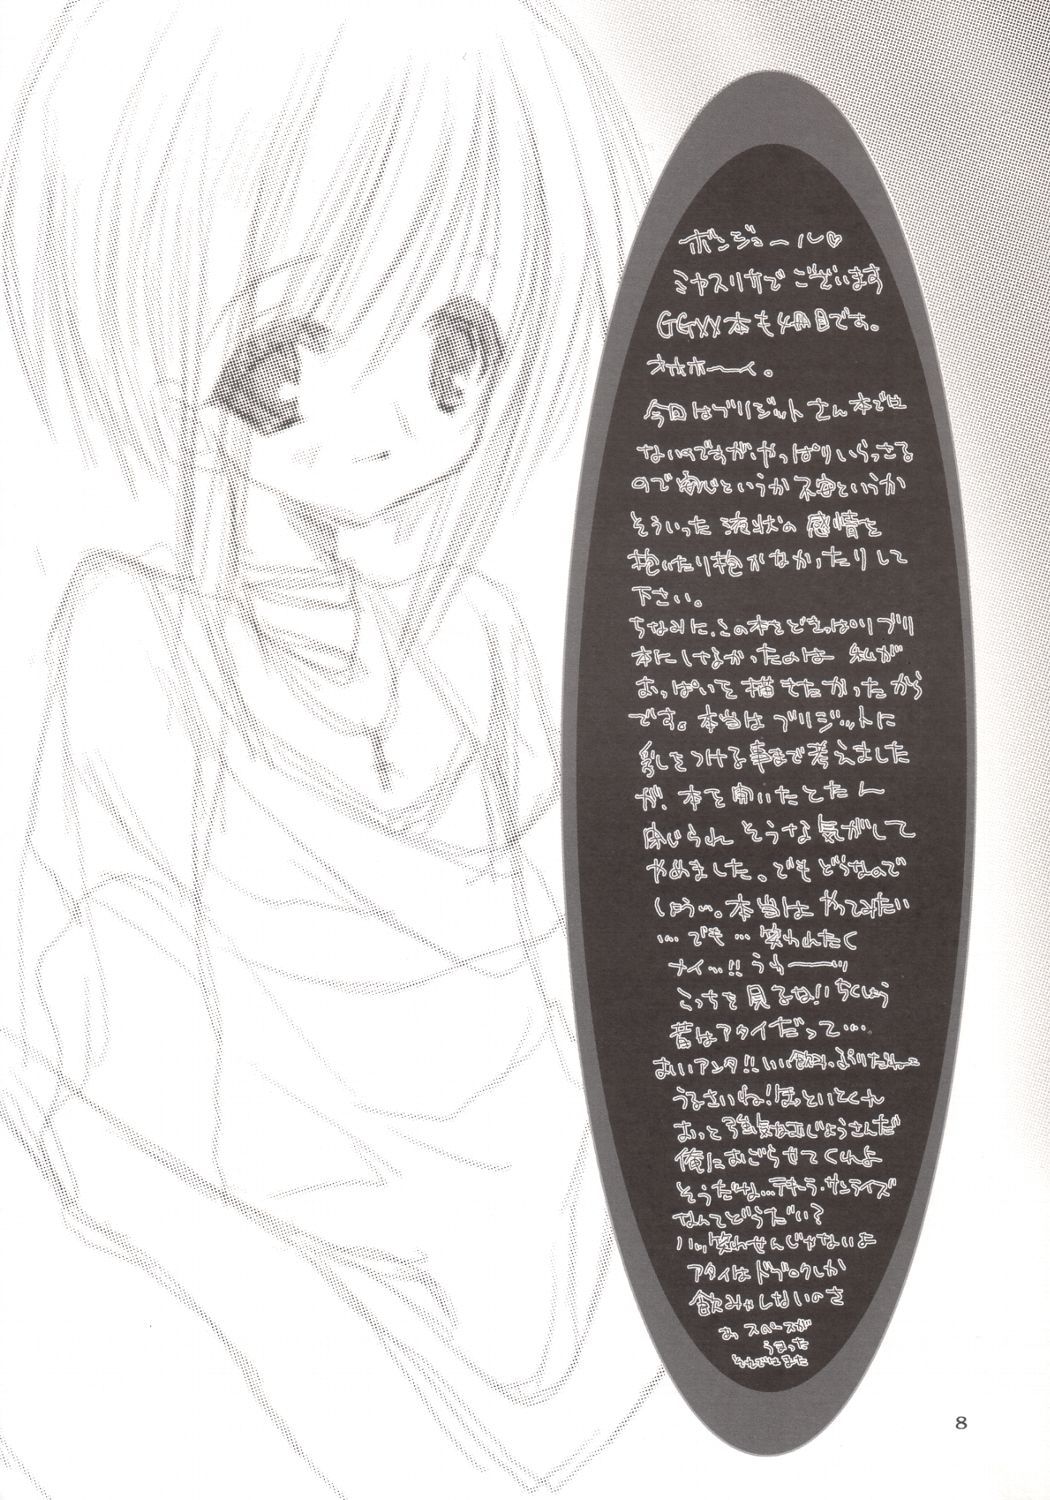 ボンジュール♡
ミヤスリサでございます
GGXX本も4冊目です。
オホホーイ。
今回はブリジットさん本では
ないですが、やっぱりいらっさる
ので安心というか不安というか
そういった液状の感情を
抱いたり抱かなかったりして
下さい。
ちなみに、この本をどきっぱりブリ
本にしなかったのは 私が
おっぱいを描きたかったから
です。本当はブリジットに
乳をつける事まで考えました
が、本を開いたとたん
閉じられそうな気がして
やめました。でもどうなので
しょうか。本当はやってみたい
…でも…笑われたく
ナイッ!!うわーーッ
こっちを見るね!!ちくしょう
昔はアタイだって…。
おいアンタ!!いい飲みっぷりだねェ
うるさいね!ほっといとくれ
おっと強気なおじょうさんだ
俺におごらせてくれよ
そうだな…テキーラ・サンライズ
なんてどうだい?
ハッ、笑わせんじゃないよ
アタイはドブロクしか
飲みゃしないのさ
あ スペースが
うまった
それではまた
8